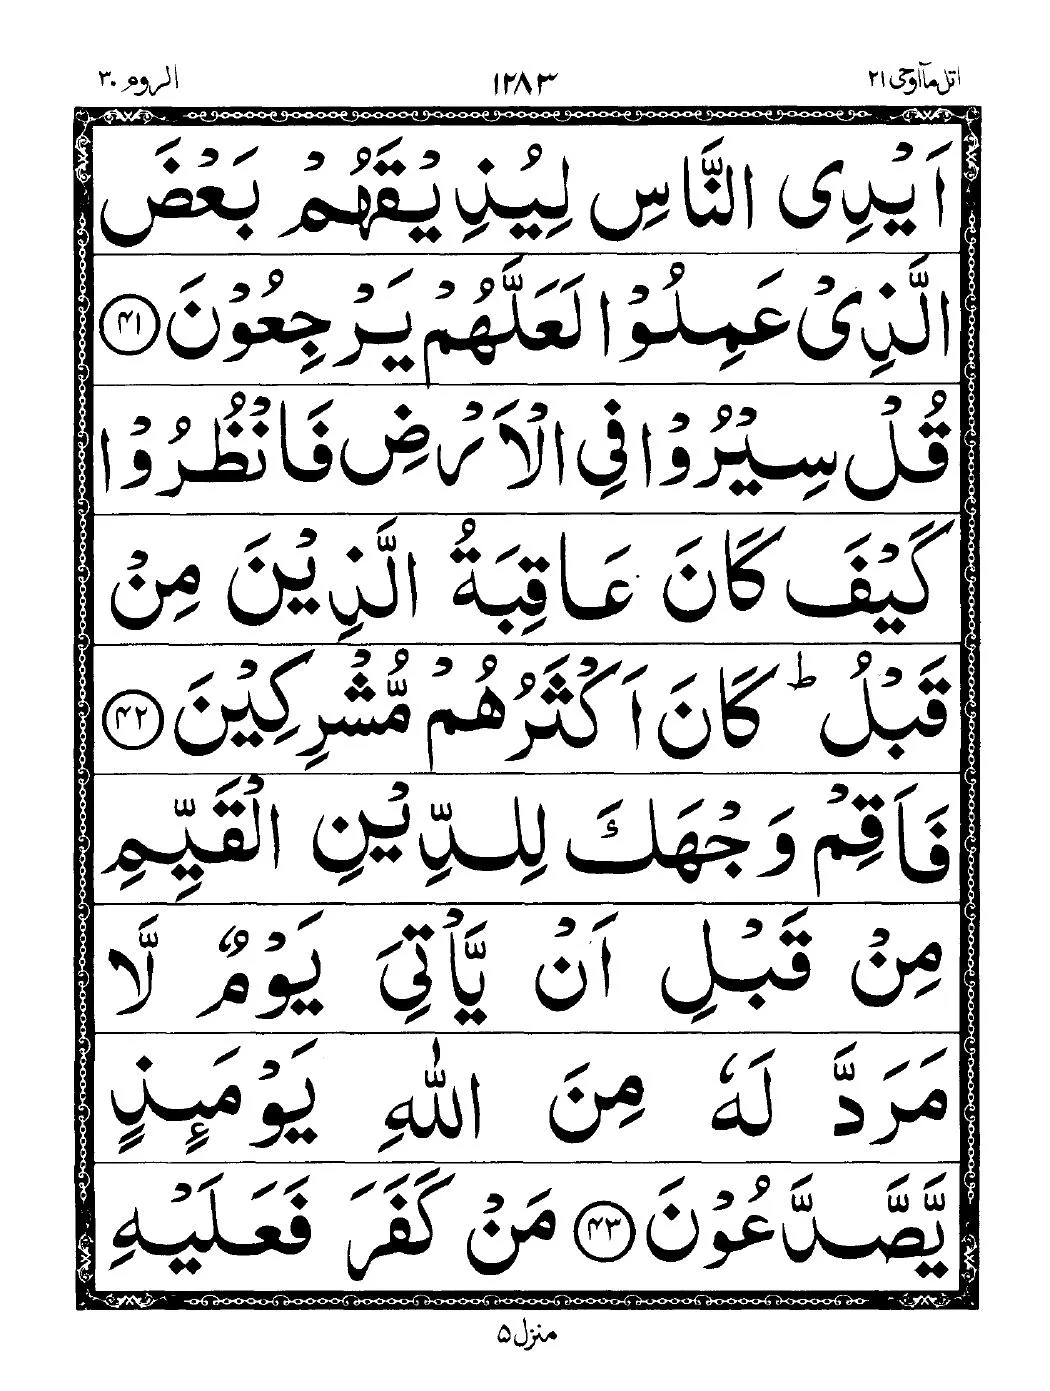 اتل مآ اوحی ۲۱ ۱۲۸۳ الروم ۳۰
اَیْدِی النَّاسِ لِیُذِیْقَهُمْ بَعْضَ
الَّذِیْ عَمِلُوْا لَعَلَّهُمْ یَرْجِعُوْنَ ۴۱
قُلْ سِیْرُوْا فِی الْاَرْضِ فَانْظُرُوْا
كَیْفَ كَانَ عَاقِبَةُ الَّذِیْنَ مِنْ
قَبْلُ ؕ كَانَ اَكْثَرُهُمْ مُّشْرِكِیْنَ ۴۲
فَاَقِمْ وَجْهَكَ لِلدِّیْنِ الْقَیِّمِ
مِنْ قَبْلِ اَنْ یَّاْتِیَ یَوْمٌ لَّا
مَرَدَّ لَهٗ مِنَ اللّٰهِ یَوْمَىِٕذٍ
یَّصَّدَّعُوْنَ ۴۳ مَنْ كَفَرَ فَعَلَیْهِ
منزل ۵